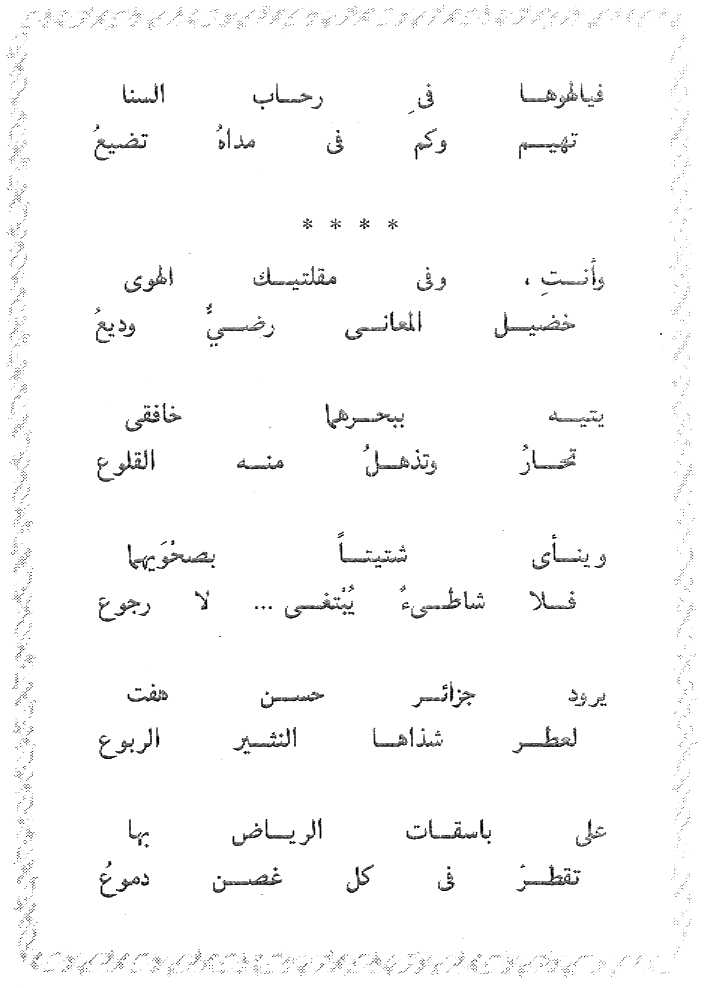 فيالهوها فىِ رحاب السنا
تهيم وكم فى مداهُ تضيعُ
* * * *
وأنتِ ، وفى مقلتيك الهوى
خضيل المعانى رضىٌّ وديعُ
يتيه ببحرهما خافقى
تحارُ وتذهلُ منه القلوع
وينأى شتيتاً بصحْوَيهما
فلا شاطىءُ يُبْتغى ... لا رجوع
يرود جزائر حسن هفت
لعطر شذاها النثير الربوع
على باسقات الرياض بها
تقطرَ فى كل غصن دموعُ